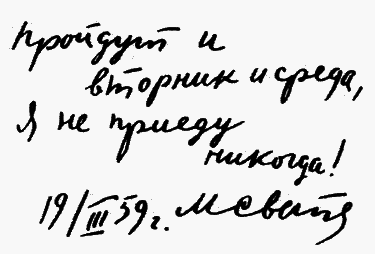 Пройдут и
вторник и среда,
Я не приеду
никогда!
19/III 59г. МСветл